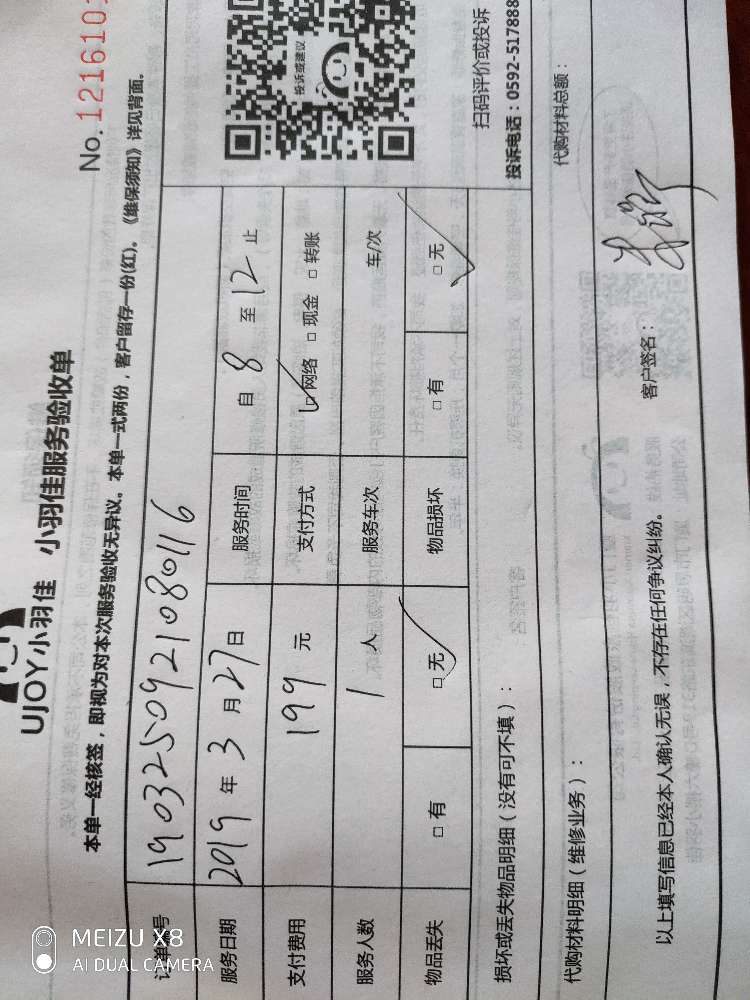 UJOY小羽佳 小羽佳服务验收单
No.1216101
本单一经核签，即视为对本次服务验收无异议。本单一式两份，客户留存一份(红)。《维保须知》详见背面。
订单编号 1903250921080116
服务日期 2019 年 3 月 27 日 服务时间 自 8 至 12 止
支付费用 199 元 支付方式 □网络 □现金 □转账
服务人数 1 人 服务车次 车/次
物品丢失 □有 □无 物品损坏 □有 □无
投诉或建议
扫码评价或投诉
投诉电话：0592-517888
损坏或丢失物品明细（没有可不填）：
代购材料明细（维修业务）： 代购材料总额：
以上填写信息已经本人确认无误，不存在任何争议纠纷。 客户签名：
MEIZU X8
AI DUAL CAMERA